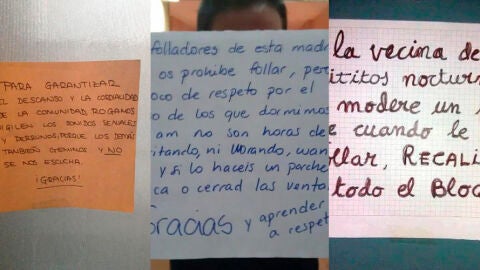 PARA GARANTIZAR
EL DESCANSO Y LA CORDIALIDAD
DE LA COMUNIDAD, ROGAMOS
VIGILEN LOS SONIDOS SEXUALES
Y DESAYUNOS, PORQUE LOS DEMÁS
TAMBIÉN GEMIMOS Y NO
SE NOS ESCUCHA.
¡GRACIAS!
folladores de esta madr
os prohibe follar, per
oco de respeto por el
o de los que dormimos
am no son horas de
itando, ni llorando,
y si lo haceis un parche
ca o cerrad las venta
Gracias y aprender
a respet
la vecina de
ititos noctur
modere un
e cuando le
ollar, RECALI
todo el Bloc